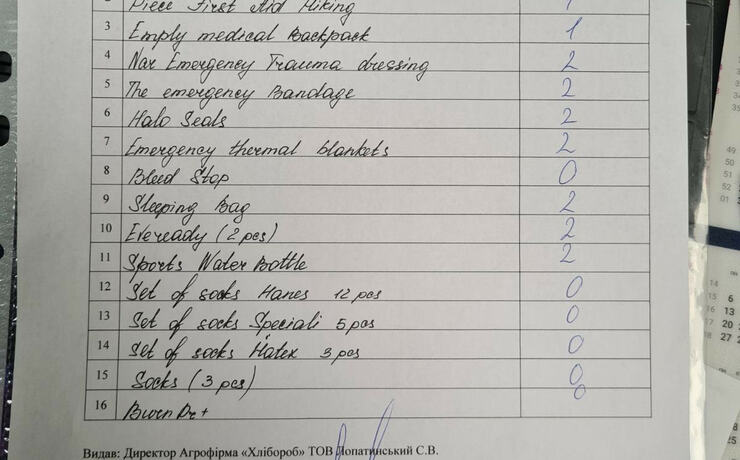 Piece First Aid Hiking 1
3 Emply medical Backpack 1
4 Nar Emergency Trauma dressing 2
5 The emergency Bandage 2
6 Halo Seals 2
7 Emergency thermal blankets 2
8 Bleed Stop 0
9 Sleeping Bag 2
10 Eveready (2 pcs) 2
11 Sports Water Bottle 2
12 Set of socks Hanes 12 pcs 0
13 Set of socks Speciali 5 pcs 0
14 Set of socks Hatex 3 pcs 0
15 Socks (3 pcs) 0
16 BurnDr+ 0
Видав: Директор Агрофірма «Хлібороб» ТОВ Лопатинський С.В.
49
50
51
52
01
14
15 6
16 13
17 20
18 27